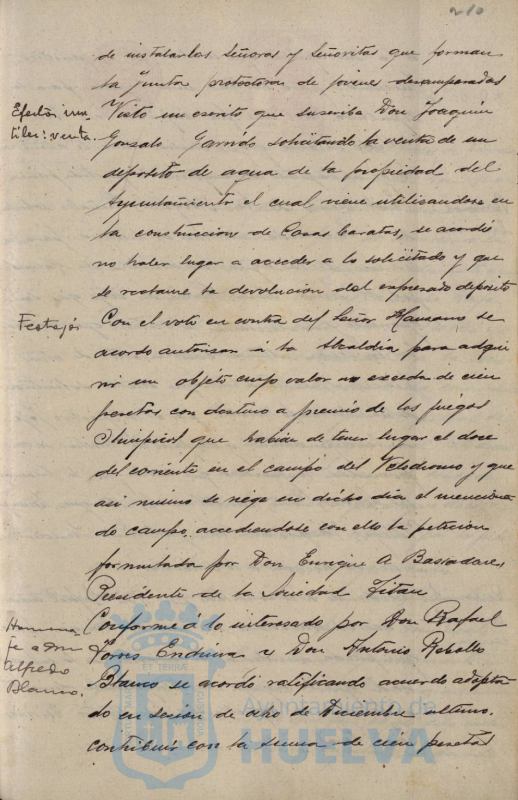 210
de instalarlas señoras y señoritas que forman
la Junta protectora de jovenes desamparadas
Efectos inu-
tiles: venta.
Visto un escrito que suscribe Don Joaquin
Gonzalo Garrido solicitando la venta de un
deposito de agua de la propiedad del
Ayuntamiento el cual viene utilisandose en
la construccion de Casas baratas, se acordó
no haber lugar a acceder a lo solicitado y que
se reclame la devolucion del expresado deposito
Festejos
Con el voto en contra del Señor Manzano se
acordo autorisar á la Alcaldía para adqui
rir un objeto cuyo valor no exceda de cien
pesetas con destino a premio de los juegos
Olimpicos que habian de tener lugar el doce
del corriente en el campo del Velodromo y que
asi mismo se riege en dicho dia el menciona
do campo, accediendose con ello la peticion
formulada por Don Enrique A Bassadare,
Presidente de la Sociedad Titan
Homena
je a Don
Alfredo
Blanco.
Conforme á lo interesado por Don Rafael
Torres Endrina y Don Antonio Rebollo
Blanco se acordó ratificando acuerdo adopta
do en sesion de ocho de Diciembre ultimo.
contribuir con la suma de cien pesetas
ET TERRAE
Ayuntamiento de
HUELVA